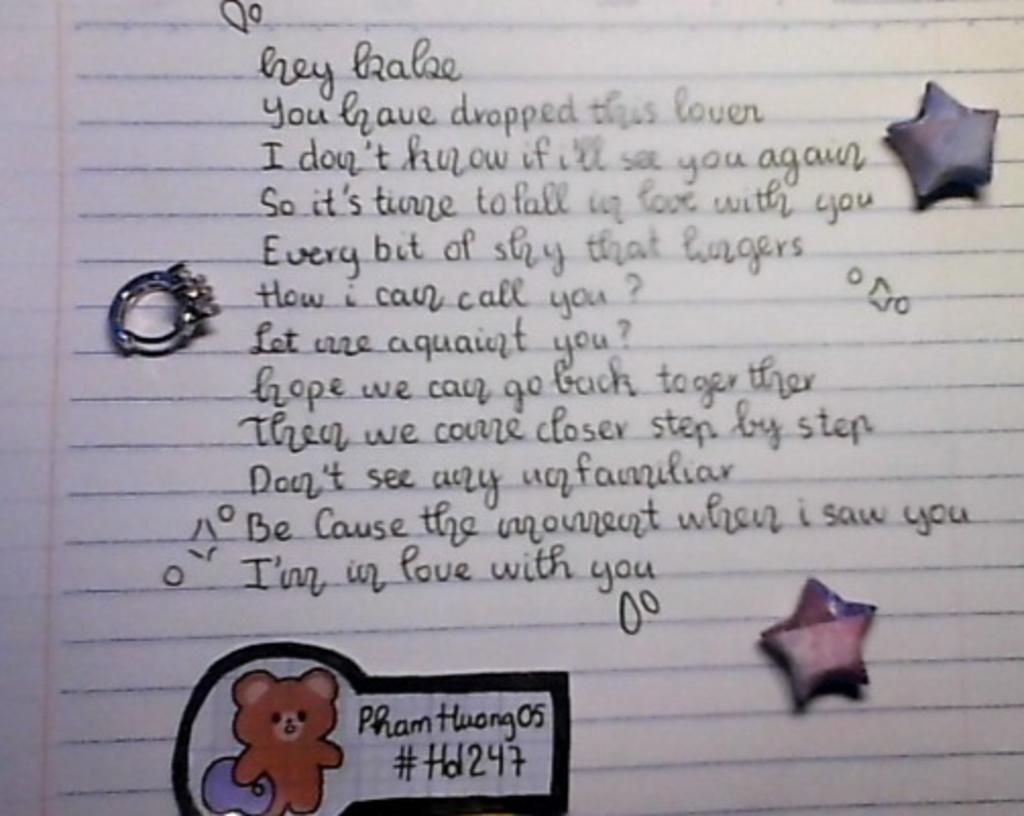 hey babe
You have dropped this lover
I don't know if i'll see you again
So it's time to fall in love with you
Every bit of shy that lingers
How i can call you ?
Let me aquaint you?
hope we can go back together ther
Then we come closer step by step
Don't see any unfamiliar
Be Cause the moment when i saw you
I'm in love with you
Pham Huong 05
#Hd247